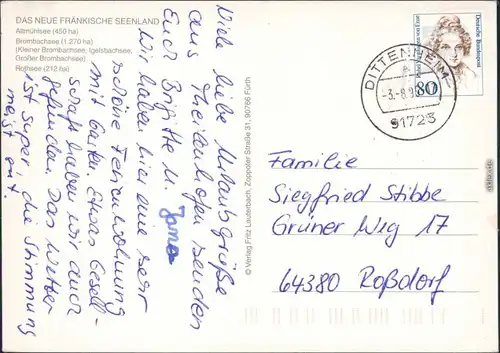 DAS NEUE FRÄNKISCHE SEENLAND
Altmühlsee (450 ha)
Brombachsee (1.270 ha)
(Kleiner Brombachsee, Igelsbachsee,
Großer Brombachsee)
Rothsee (212 ha)
Viele liebe Urlaubsgrüße
aus Theilenhofen senden
Euch Brigitte u.
Wir haben hier eine sehr
schöne Ferienwohnung
mit Garten. Etwas Gesell-
schaft haben wir auch
gefunden. Das Wetter
ist super, die Stimmung
meist gut.
© Verlag Fritz Lauterbach, Zoppoter Straße 31, 90766 Fürth
Deutsche Bundespost
80
DITTENHEIM
-3.-8.9
91723
Familie
Siegfried Stibbe
Grüner Weg 17
64380 Roßdorf